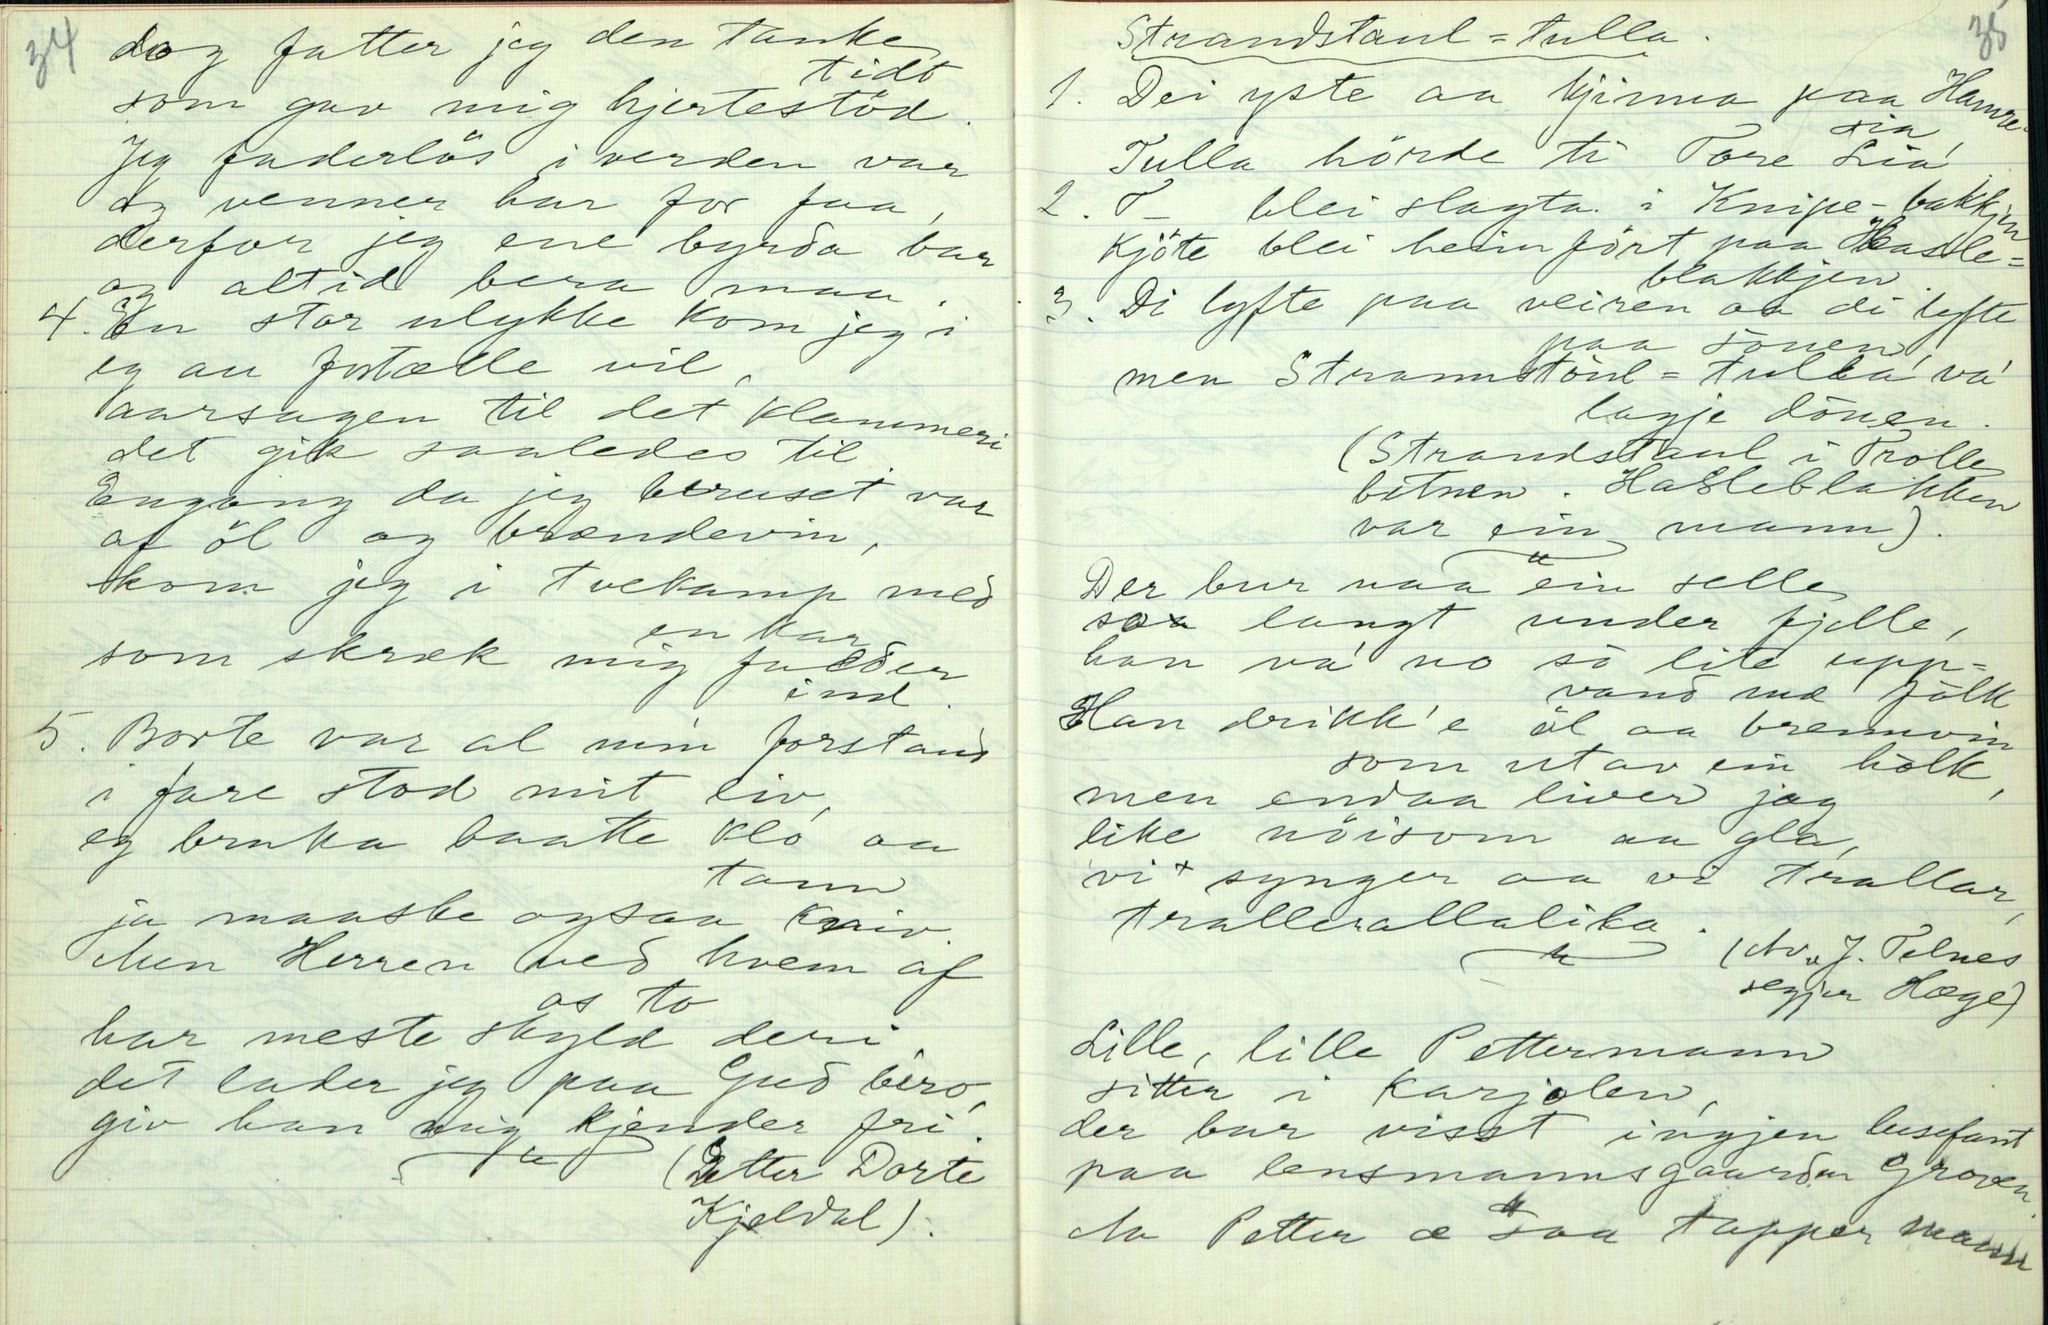 34
dog fatter jeg den tanke
tidt
som gav mig hjertestöd.
Jeg faderlös i verden var
og venner har for faa,
derfor jeg ene byrda bar
og altid bera maa.
4. En stor ulykke kom jeg i
eg au fortælle vil,
aarsagen til det klammeri
det gik saaledes til
Engang da jeg beruset var
af öl og brændevin,
kom jeg i tvekamp med
en kar
som skræk mig fadder
ind.
5. Borte var al min forstand
i fare stod mit liv,
eg bruka baatte klo aa
tann
ja maaske ogsaa kniv.
Men Herren ved hvem af
os to
har meste skyld deri,
det lader jeg paa Gud bero,
giv han mig kjender fri.
(Etter Dorte
Kjeldal).
35
Strandstaul=tulla.
1. Dei yste aa kjinna paa Hamre-
sia,
Tulla hörde ti Tore Lia
2. T- blei slagta i Knipe-bakkjin
Kjöte blei heimfört paa Hasle=
blakkjen
3. Di lyfte paa veiren aa di lyfte
paa sönen,
men Strannstöul=tulla va'
lagje dönen.
(Strandstaul i Trolle
botnen. Hasleblakken
var ein mann).
Der bur naa ein selle
saa langt under fjelle,
han va' no så lite upp=
vand mæ fålk
Han drikk'e öl aa brennvin
som utav ein hålk,
men endaa liver jag
like nöisom aa gla,
vi synger aa vi trallar,
trallerallalika.
(Av J. Telnes
segjer Hæge)
Lille, lille Pettermann
sitter i karjolen,
der bur visst ingjen lusefant
paa lensmannsgaarden Groven.
Aa Petter æ saa tapper mann